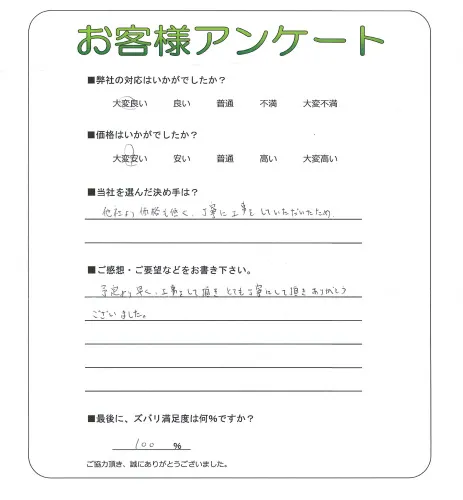 お客様アンケート
■弊社の対応はいかがでしたか？
大変良い 良い 普通 不満 大変不満
■価格はいかがでしたか？
大変安い 安い 普通 高い 大変高い
■当社を選んだ決め手は？
他社より価格も低く、丁寧に工事をしていただいたため
■ご感想・ご要望などをお書き下さい。
予定より早く、工事をして頂き とても丁寧にして頂き ありがとう
ございました。
■最後に、ズバリ満足度は何％ですか？
100 ％
ご協力頂き、誠にありがとうございました。